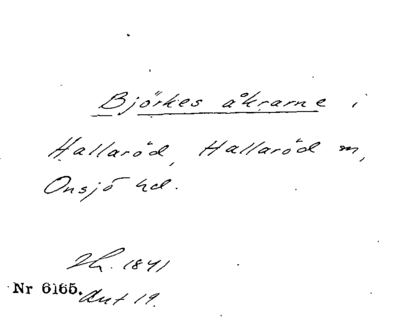 Björkes åkrarne i
Hallaröd, Hallaröd m,
Onsjö hd.
Zh. 1841
Nr 6165.
Akt 19.